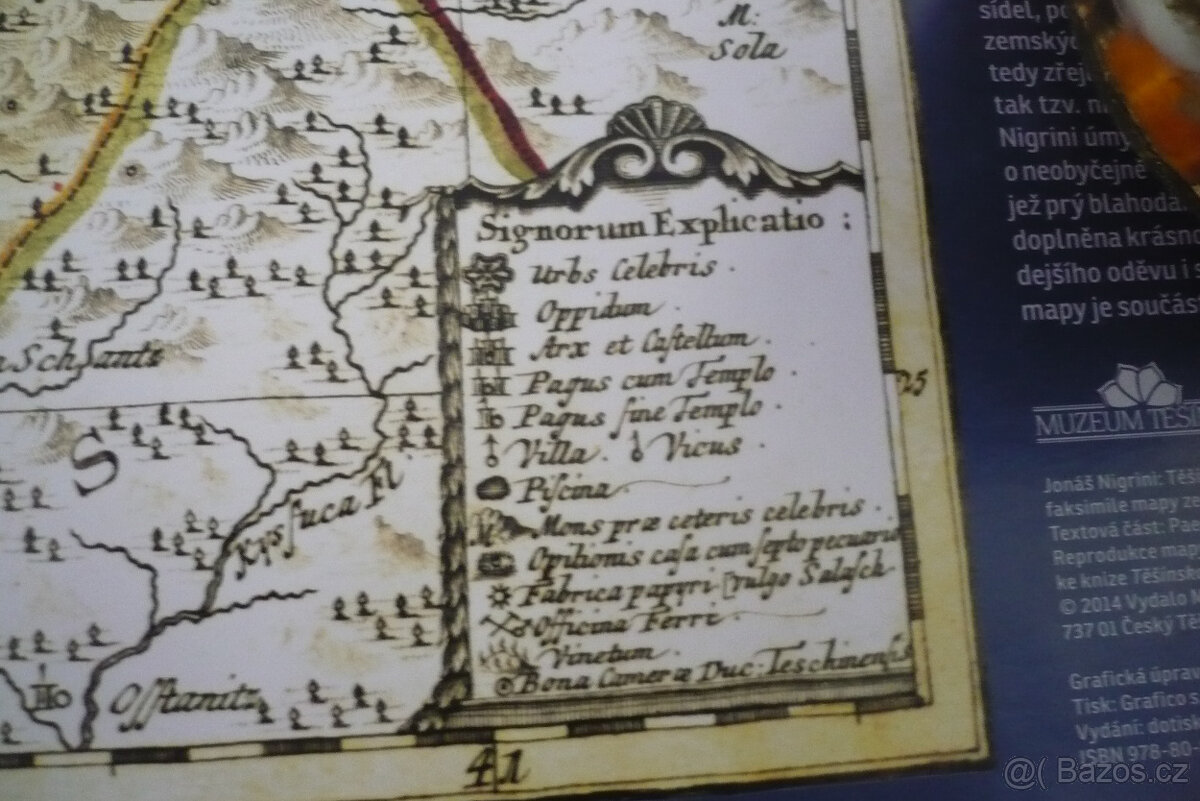 M:
Sola
Schantz
S
Kysfuca Fl.
Offtanitz
41
25
Signorum Explicatio :
Urbs Celebris .
Oppidum .
Arx et Castellum .
Pagus cum Templo .
Pagus sine Templo .
Villa . Vicus .
Piscina
Mons præ ceteris celebris .
Opilionis casa cum septo pecuario
Fabrica papyri [vulgo Salasch
Officina Ferri .
Vinetum .
Bona Cameræ Duc: Teschinensis
sídel, po
zemskýc
tedy zřej
tak tzv.
Nigrini úmy
o neobyčejně
jež prý blahoda
doplněna krásno
dejšího oděvu i s
mapy je součás
MUZEUM TĚŠÍ
Jonáš Nigrini: Těš
faksimile mapy z
Textová část: Pa
Reprodukce map
ke knize Těšínsk
© 2014 Vydalo M
737 01 Český Tě
Grafická úprav
Tisk: Grafico s
Vydání: dotis
ISBN 978-80
@( Bazos.cz